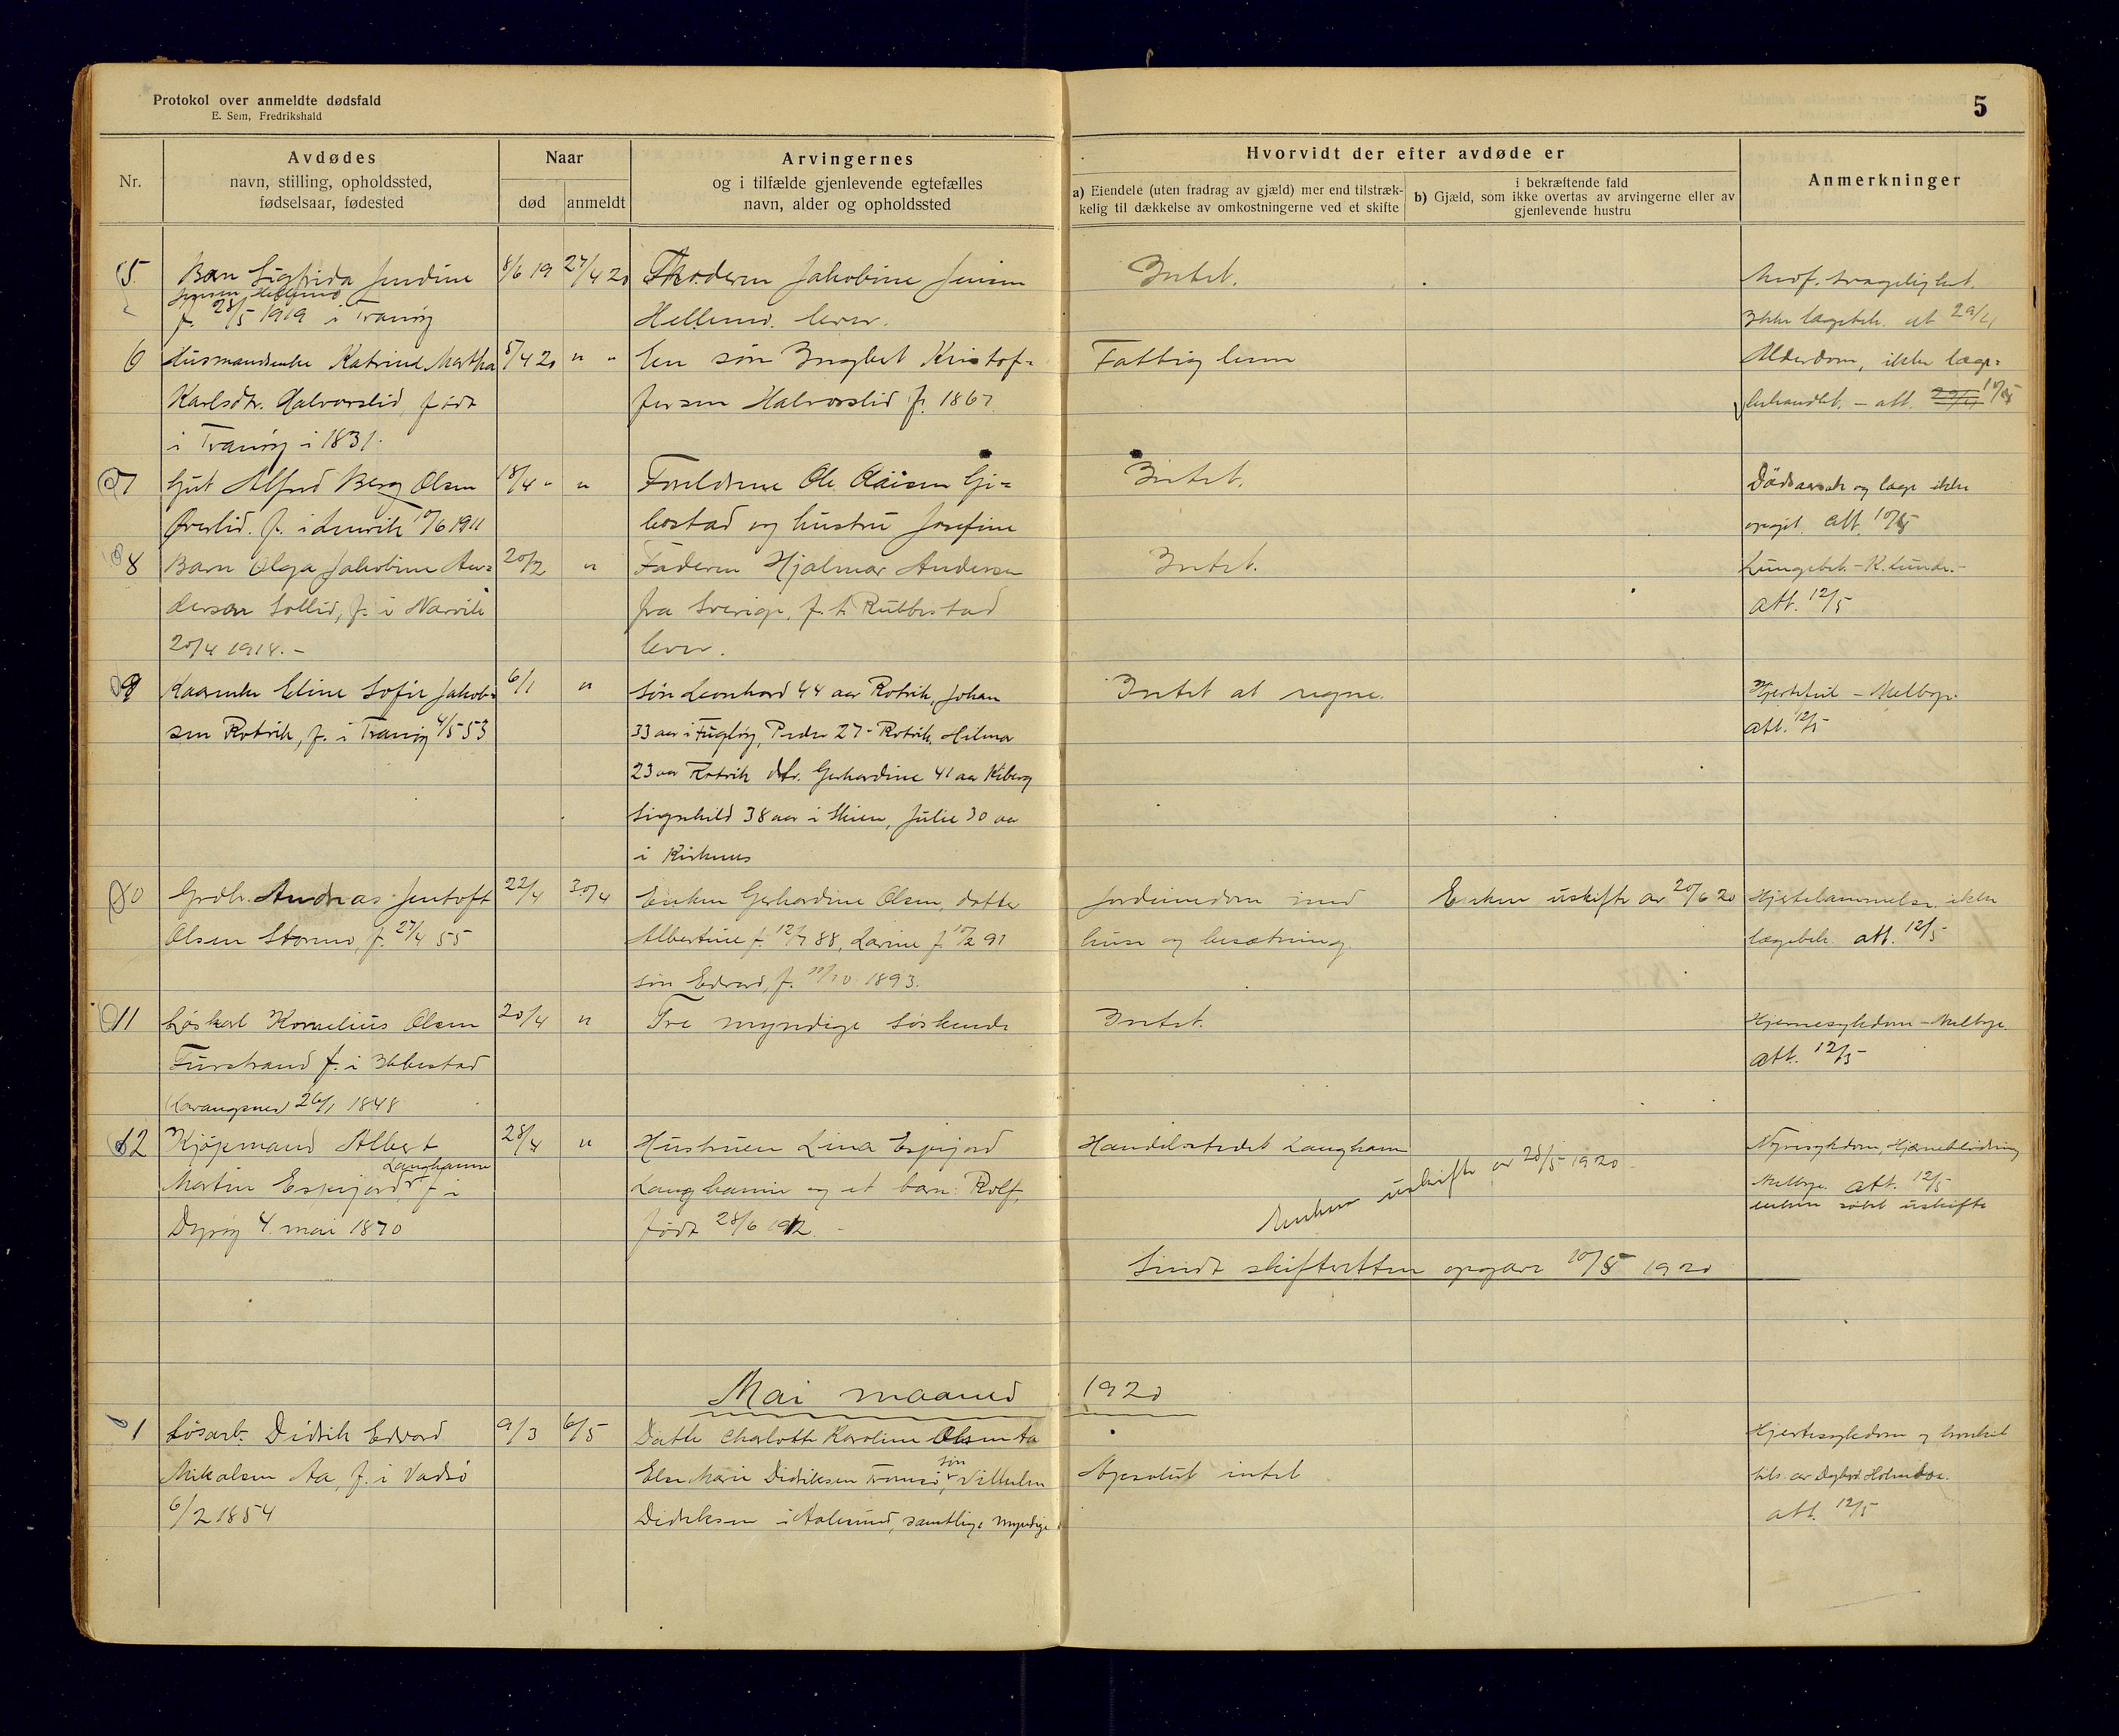 Protokol over anmeldte dødsfald
E. Sem, Fredrikshald
5
Nr.
Avdødes
navn, stilling, opholdssted,
fødselsaar, fødested
Naar
død
anmeldt
Arvingernes
og i tilfælde gjenlevende egtefælles
navn, alder og opholdssted
Hvorvidt der efter avdøde er
a) Eiendele (uten fradrag av gjæld) mer end tilstræk-
kelig til dækkelse av omkostningerne ved et skifte
i bekræftende fald
b) Gjæld, som ikke overtas av arvingerne eller av
gjenlevende hustru
Anmerkninger
5 Barn Sigfrida Jendine 8/6 19 27/4 20 Moderen Jakobine Jensen Intet. Medf. svagelighet.
Jensen Hellemo
f. 28/5 1919 i Tranøy Hellemo. lever. Ikke lægebeh. at 29/4
6 Husmandsenke Katrine Martha 5/4 20 " " En søn Ingbert Kristof= Fattiglem Alderdom, ikke læge=
Karlsdtr. Halvorslid, født fersen Halvorslid f. 1867. behandlet. – att. 29/4 10/5
i Tranøy i 1831.
7 Gut Alfred Berg Olsen 18/4 " " Foreldrene Ole Olaisen Gi= Intet. Dödsaarsak og læge ikke
Øverlid. f. i Lenvik 10/6 1911 bostad og hustru Josefine opgit. att. 10/5
8 Barn Olga Jakobine An= 20/2 " Faderen Hjalmar Andersen Intet. Lungebet. – K. Lunde. –
dersen Sollid, f. i Narvik fra Sverige, f. t. Rubbestad att. 12/5
20/4 1914. – lever.
9 Kaarenke Eline Sofie Jakob= 6/1 " Søn Leonhard 44 aar Rotvik, Johan Intet at regne. Hjertefeil – Melbye.
sen Rotvik, f. i Tranøy 4/5 53 33 aar i Fugløy, Peder 27 - Rotvik, Hilmar att. 12/5
23 aar Rotvik dtr. Gerhardine 41 aar Kiberg
Signhild 38 aar i Skien, Julie 30 aar
i Kirkenes
10 Grdbr. Andreas Jentoft 22/4 30/4 Enken Gerhardine Olsen, datter Jordeiendom med Enken uskifte av 20/6 20 Hjertelammelse, ikke
Olsen Stormo, f. 27/4 55 Albertine f. 12/7 88, Larine f. 10/2 91 huse og besætning. lægebeh. att. 12/5
søn Edvard, f. 11/10 1893.
11 Løskarl Kornelius Olsen 20/4 " Tre myndige søskende Intet. Hjernesykdom – Melbye.
Furstrand f. i Ibbestad att. 12/5
26/1 1848
12 Kjøpmand Albert 28/4 " Hustruen Lina Espejord Handelsstedet Langhamn Nyresykdom, Hjerneblødning
Langhamn
Martin Espejord f. i Langhamn og et barn: Rolf, Enken uskifte av 28/5 1920 Melbye. att. 12/5
Dyrøy 4. mai 1870 født 28/6 1912. – enken søkt uskifte
Sendt skifteretten opgave 10/5 1920
Mai maaned 1920
1 Løsarb. Didrik Edvard 9/3 6/5 Datter Charlotte Karoline Olsen Aa Hjertesykdom og bronkit
Mikalsen Aa, f. i Vadsö Else Marie Didriksen Tromsö, søn Vilhelm Absolut intet tils. av Holmboe.
6/2 1854 Didriksen i Aalesund, samtlige myndige att. 12/5